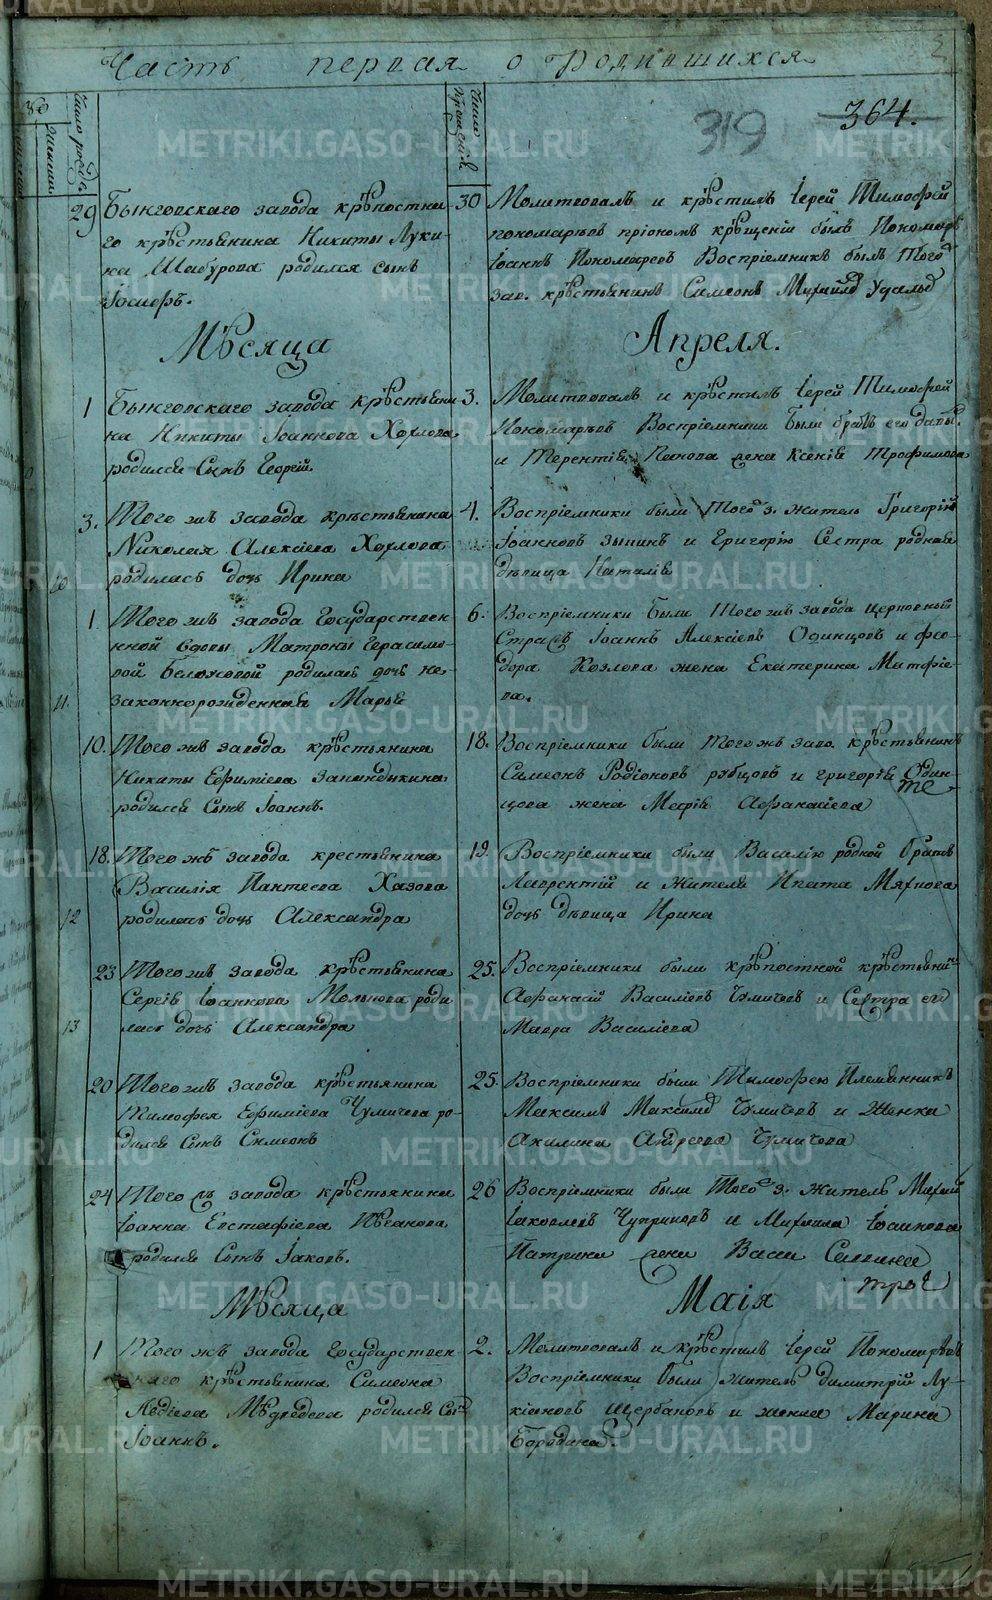 Часть первая о Родившихся
319
364.
Число рожд.
Число крещенія
женска
29 Быньговскаго завода крѣпостна-
го крѣстьянина Никиты Луки-
на Шабурова родился сынъ
Іосифъ.
30 Молитвовалъ и крѣстилъ Іерей Тимофей
пономаревъ пріономъ крѣщеніи былъ Пономарь
Іоаннъ Пономаревъ Воспріемникъ былъ Того
зав. крѣстьянинъ Симеонъ Михайлов
Мѣсяца Апреля.
1 Быньговскаго завода крѣстьяни
на Никиты Іоаннова Хохлова
родился Сынъ Георгій
3. Молитвовалъ и крѣстилъ Іерей Тимофей
Пономаревъ Воспріемники Были братъ его давы.
и Терентія Панова жена Ксенія Трофимова
3. Того жъ завода крѣстьянина
Николая Алексіева Хохлова
родилась дочь Ирина
10
4. Воспріемники были Того з. житель Григорій
Іоанновъ зыкинъ и Григорію Сестра родная
дѣвица Наталія
1. Того жъ завода Государствен
нной вдовы Матроны Герасимо-
вой Белоховой родилась дочь не-
законнорожденная Марья
11.
6. Воспріемники были Того жъ завода церковный
Іоаннъ Алексіевъ Одинцовъ и Фео-
дора Козлова жена Екатерина Матфіе-
ва.
10. Того жъ завода крѣстьянина
Никиты Ефиміева
родился Сынъ Іоаннъ.
18. Воспріемники были Того жъ заво. крѣстьянинъ
Симеонъ Родіоновъ рубцовъ и григорія Один-
цова жена Афанасіева
18. Того жъ завода крестьянина
Василія Пантеева Хазова
родилась дочь Александра
12
19. Воспріемники были Василію родной братъ
Лаврентій и Жителя Ипата Мяхнова
дочь дѣвица Ирина
23 Того жъ завода крѣстьянина
Сергія Іоаннова роди
лась дочь Александра
13
25. Воспріемники были крѣпостной крѣстьяни
Афанасій Василіевъ Чумичевъ и Сестра его
Мавра Василіева
20 Того жъ завода крѣстьянина
Тимофея Ефиміева Чумичева ро-
дился Сынъ Симеонъ
25. Воспріемники были Тимофею Племянникъ
Максимъ Максимов Чумичевъ и Женка
Акилина Андреева Чумичева
24 Того жъ завода крѣстьянина
Іоанна Евстафіева Иванова
родился Сынъ Іаковъ.
26 Воспріемники были Того з. житель Михаил
Іаковлевъ Чуприновъ и Михаила Іоаннова
жена Васи
Мѣсяца Маія
1 Того жъ завода Государствен-
ннаго крѣстьянина Симеона
Авдіева Мѣдведева родился Сы
Іоаннъ.
2. Молитвовалъ и крѣстилъ Іерей Пономаревъ
Воспріемники были житель димитрій Лу-
кіановъ Щербаковъ и женка Марина
Бородина.
METRIKI.GASO-URAL.RU